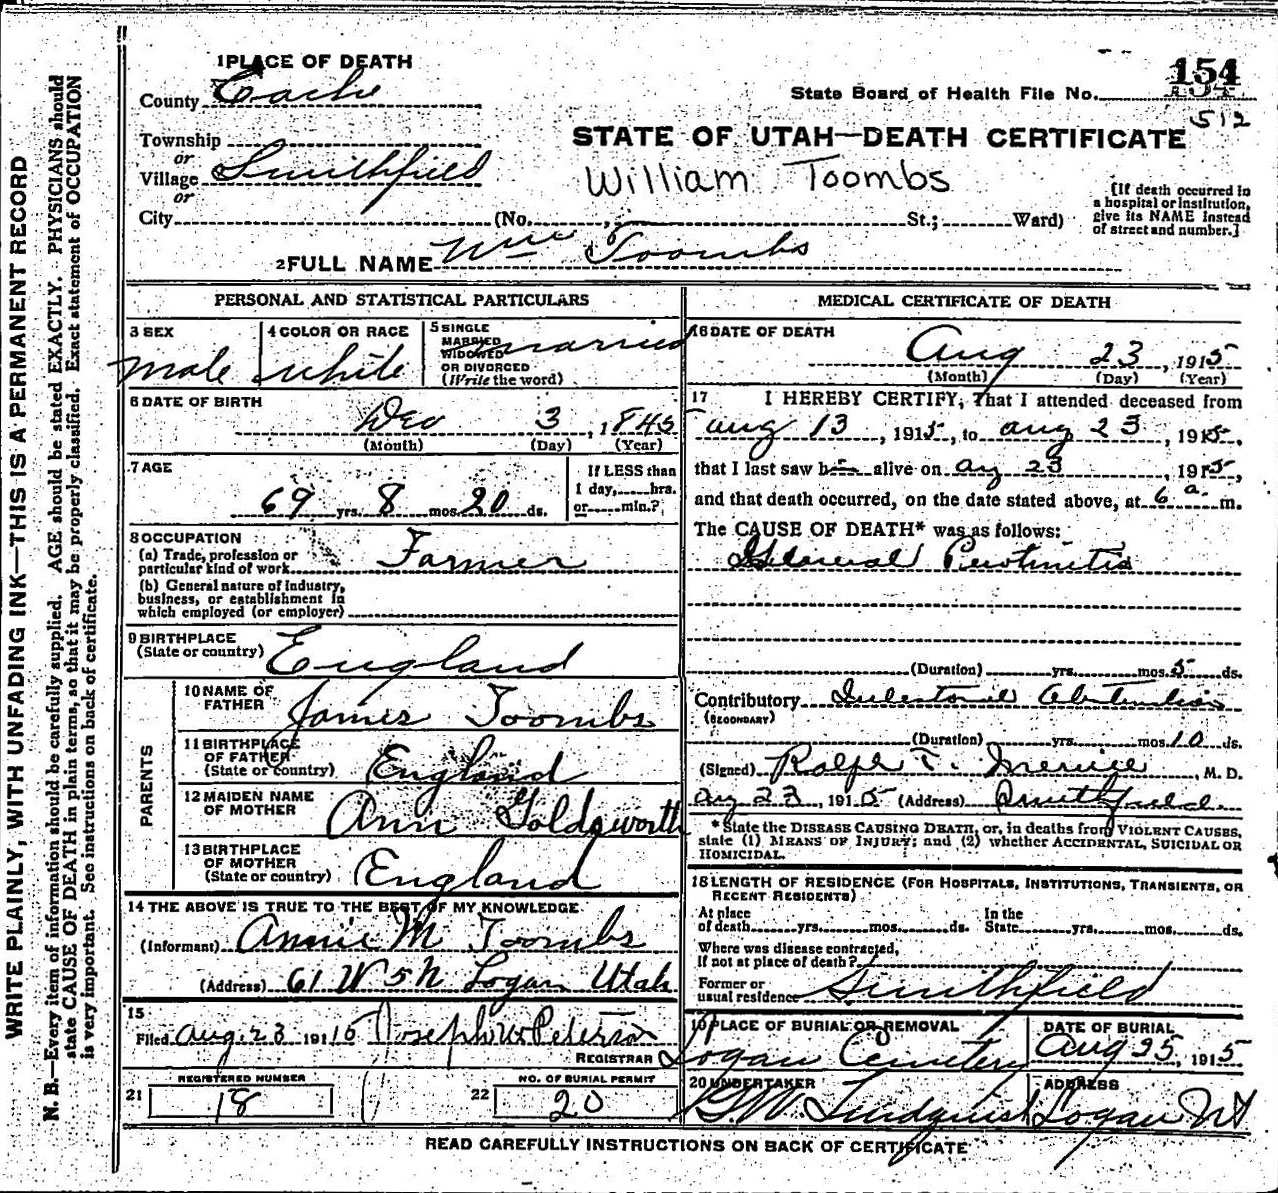 WRITE PLAINLY, WITH UNFADING INK—THIS IS A PERMANENT RECORD
N. B.—Every item of information should be carefully supplied. AGE should be stated EXACTLY. PHYSICIANS should
state CAUSE OF DEATH in plain terms, so that it may be properly classified. Exact statement of OCCUPATION
is very important. See instructions on back of certificate.
1 PLACE OF DEATH
County Cache
State Board of Health File No. 154
512
Township
or
Village Smithfield
or
STATE OF UTAH—DEATH CERTIFICATE
William Toombs
[If death occurred in
a hospital or institution,
give its NAME instead
of street and number.]
City (No. , St.; Ward)
2 FULL NAME Wm Toombs
PERSONAL AND STATISTICAL PARTICULARS
3 SEX
male
4 COLOR OR RACE
white
5 SINGLE
MARRIED
WIDOWED
OR DIVORCED
(Write the word)
married
6 DATE OF BIRTH
Dec 3, 1845
(Month) (Day) (Year)
7 AGE
69 yrs. 8 mos. 20 ds.
If LESS than
1 day, hrs.
or min.?
8 OCCUPATION
(a) Trade, profession or
particular kind of work Farmer
(b) General nature of industry,
business, or establishment in
which employed (or employer)
9 BIRTHPLACE
(State or country) England
PARENTS
10 NAME OF
FATHER James Toombs
11 BIRTHPLACE
OF FATHER
(State or country) England
12 MAIDEN NAME
OF MOTHER Ann Goldsworth
13 BIRTHPLACE
OF MOTHER
(State or country) England
14 THE ABOVE IS TRUE TO THE BEST OF MY KNOWLEDGE
(Informant) Annie M Toombs
(Address) 61 W 5 N Logan Utah
15
Filed Aug. 23 191 15 Joseph W Peterson
REGISTRAR
21 REGISTERED NUMBER
18
22 NO. OF BURIAL PERMIT
20
MEDICAL CERTIFICATE OF DEATH
16 DATE OF DEATH
Aug 23, 1915
(Month) (Day) (Year)
17 I HEREBY CERTIFY, That I attended deceased from
aug 13, 1915, to aug 23, 1915,
that I last saw him alive on aug 23 1915,
and that death occurred, on the date stated above, at 6 a. m.
The CAUSE OF DEATH* was as follows:
General Peritonitis
(Duration) yrs. mos. 5 ds.
Contributory Intestinal Obstruction
(SECONDARY)
(Duration) yrs. mos. 10 ds.
(Signed) Ralph T. , M. D.
aug 23, 1915 (Address) Smithfield
*State the DISEASE CAUSING DEATH, or, in deaths from VIOLENT CAUSES,
state (1) MEANS OF INJURY; and (2) whether ACCIDENTAL, SUICIDAL OR
HOMICIDAL.
18 LENGTH OF RESIDENCE (FOR HOSPITALS, INSTITUTIONS, TRANSIENTS, OR
RECENT RESIDENTS)
At place In the
of death yrs. mos. ds. State yrs. mos. ds.
Where was disease contracted,
if not at place of death?
Former or
usual residence Smithfield
19 PLACE OF BURIAL OR REMOVAL
Logan Cemetery
DATE OF BURIAL
Aug 25, 1915
20 UNDERTAKER
G.W. Lindquist
ADDRESS
Logan Ut
READ CAREFULLY INSTRUCTIONS ON BACK OF CERTIFICATE